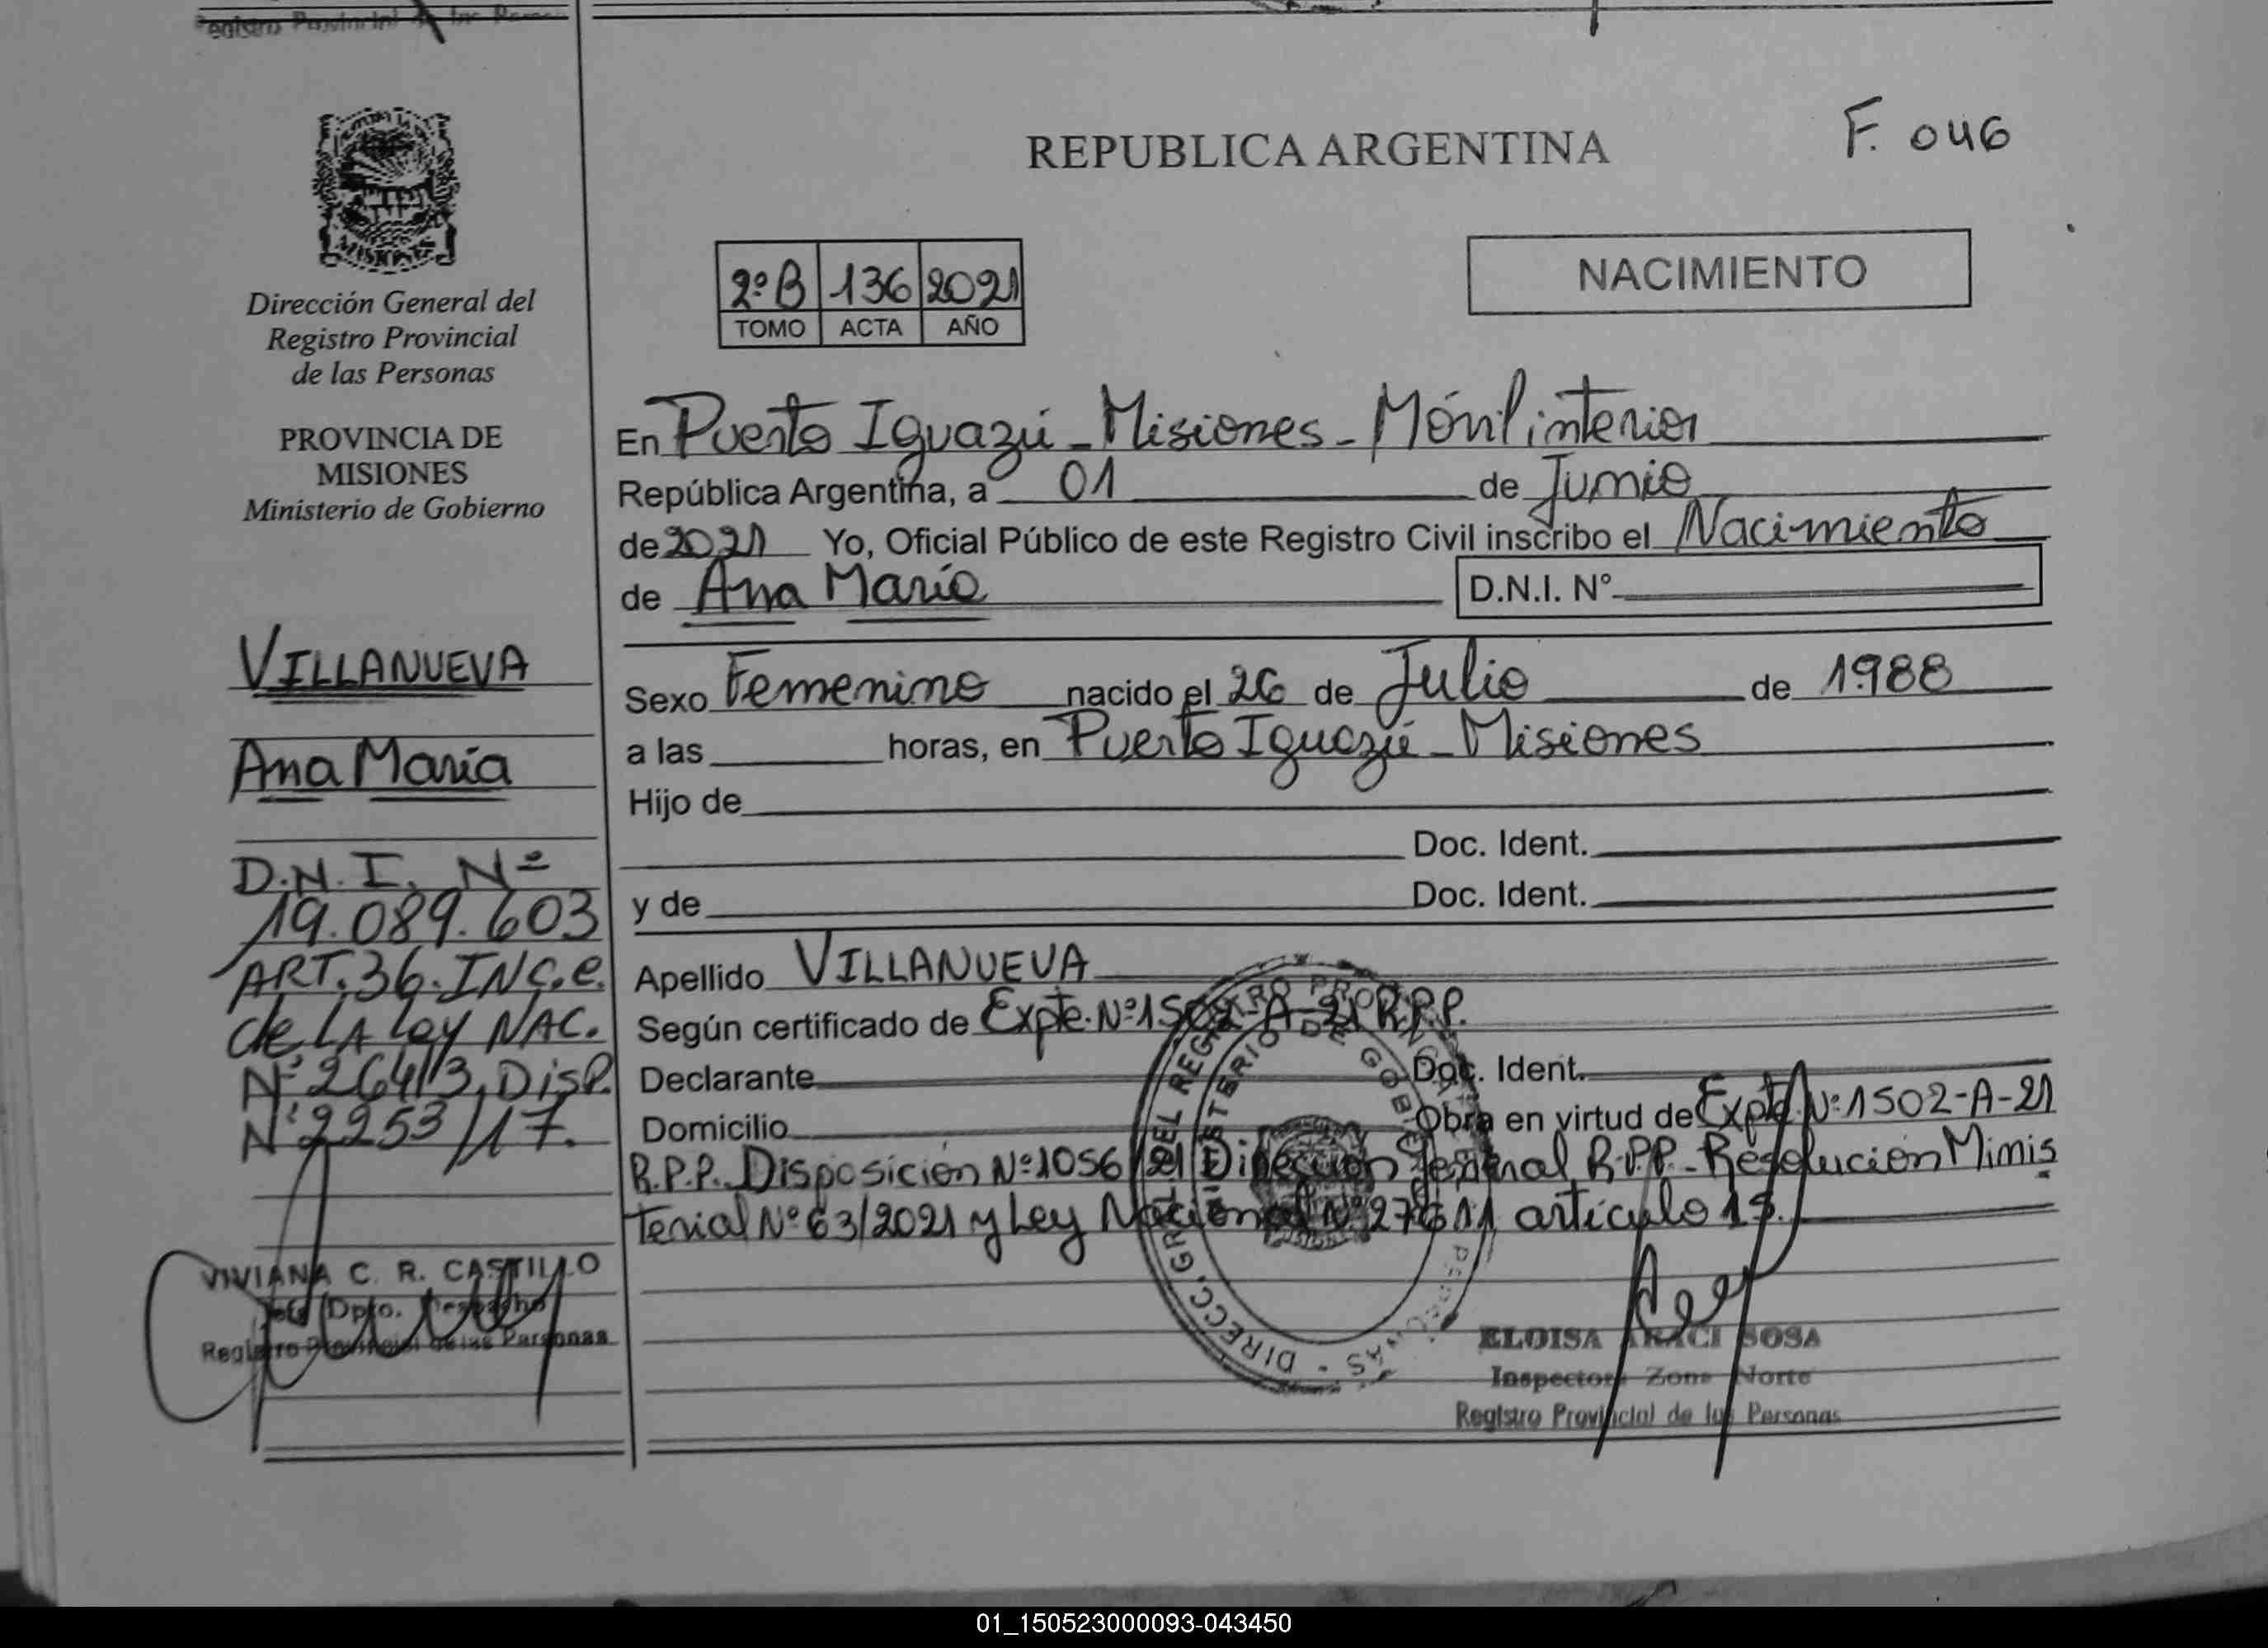 REPUBLICA ARGENTINA
F. 046
NACIMIENTO
2º B 136 2021
TOMO ACTA AÑO
Dirección General del
Registro Provincial
de las Personas
PROVINCIA DE
MISIONES
Ministerio de Gobierno
VILLANUEVA
Ana María
D.N.I. Nº
19.089.603
ART. 36. INC. e.
de LA Ley NAC.
Nº 26413, DISP.
Nº 2253/17.
VIVIANA C. R. CASTILLO
Jefe Dpto. Despacho
Registro Provincial de las Personas
En Puerto Iguazú - Misiones - Móvil interior
República Argentina, a 01 de Junio
de 2021 Yo, Oficial Público de este Registro Civil inscribo el Nacimiento
de Ana María D.N.I. Nº
Sexo Femenino nacido el 26 de Julio de 1988
a las horas, en Puerto Iguazú - Misiones
Hijo de
Doc. Ident.
y de Doc. Ident.
Apellido VILLANUEVA
Según certificado de Expte. Nº 1502-A-21 R.P.P.
Declarante Doc. Ident.
Domicilio Obra en virtud de Expte. Nº 1502-A-21
R.P.P. Disposición Nº 1056/21 Dirección General R.P.P. - Resolución Minis
terial Nº 63/2021 y Ley Nacional Nº 27611 artículo
DIRECC. GRAL. DEL REGISTRO PROVINCIAL PERSONAS
MINISTERIO DE GOBIERNO
ELOISA ARACI SOSA
Inspectora Zona Norte
Registro Provincial de las Personas
01_150523000093-043450